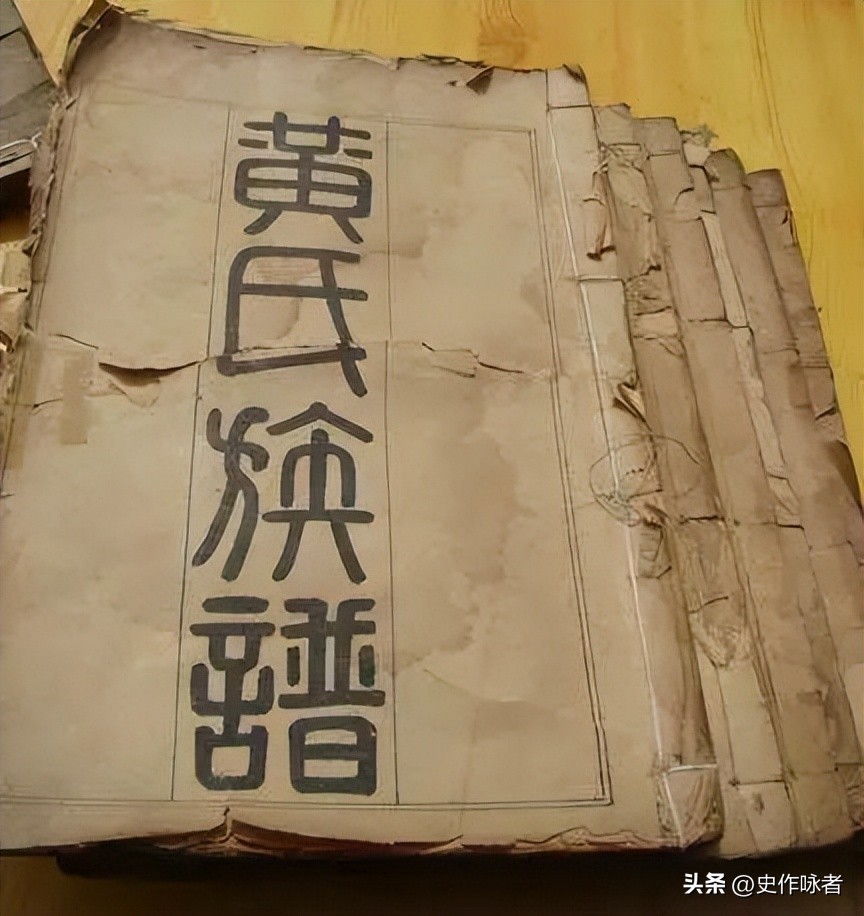 黃氏族譜
头条 @史作咏者